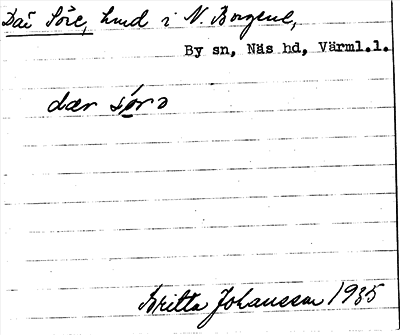 Dar Söre, hmd i N. Borgene,
By sn, Näs hd, Värml.l.
dær sørə
Britta Johansson 1935